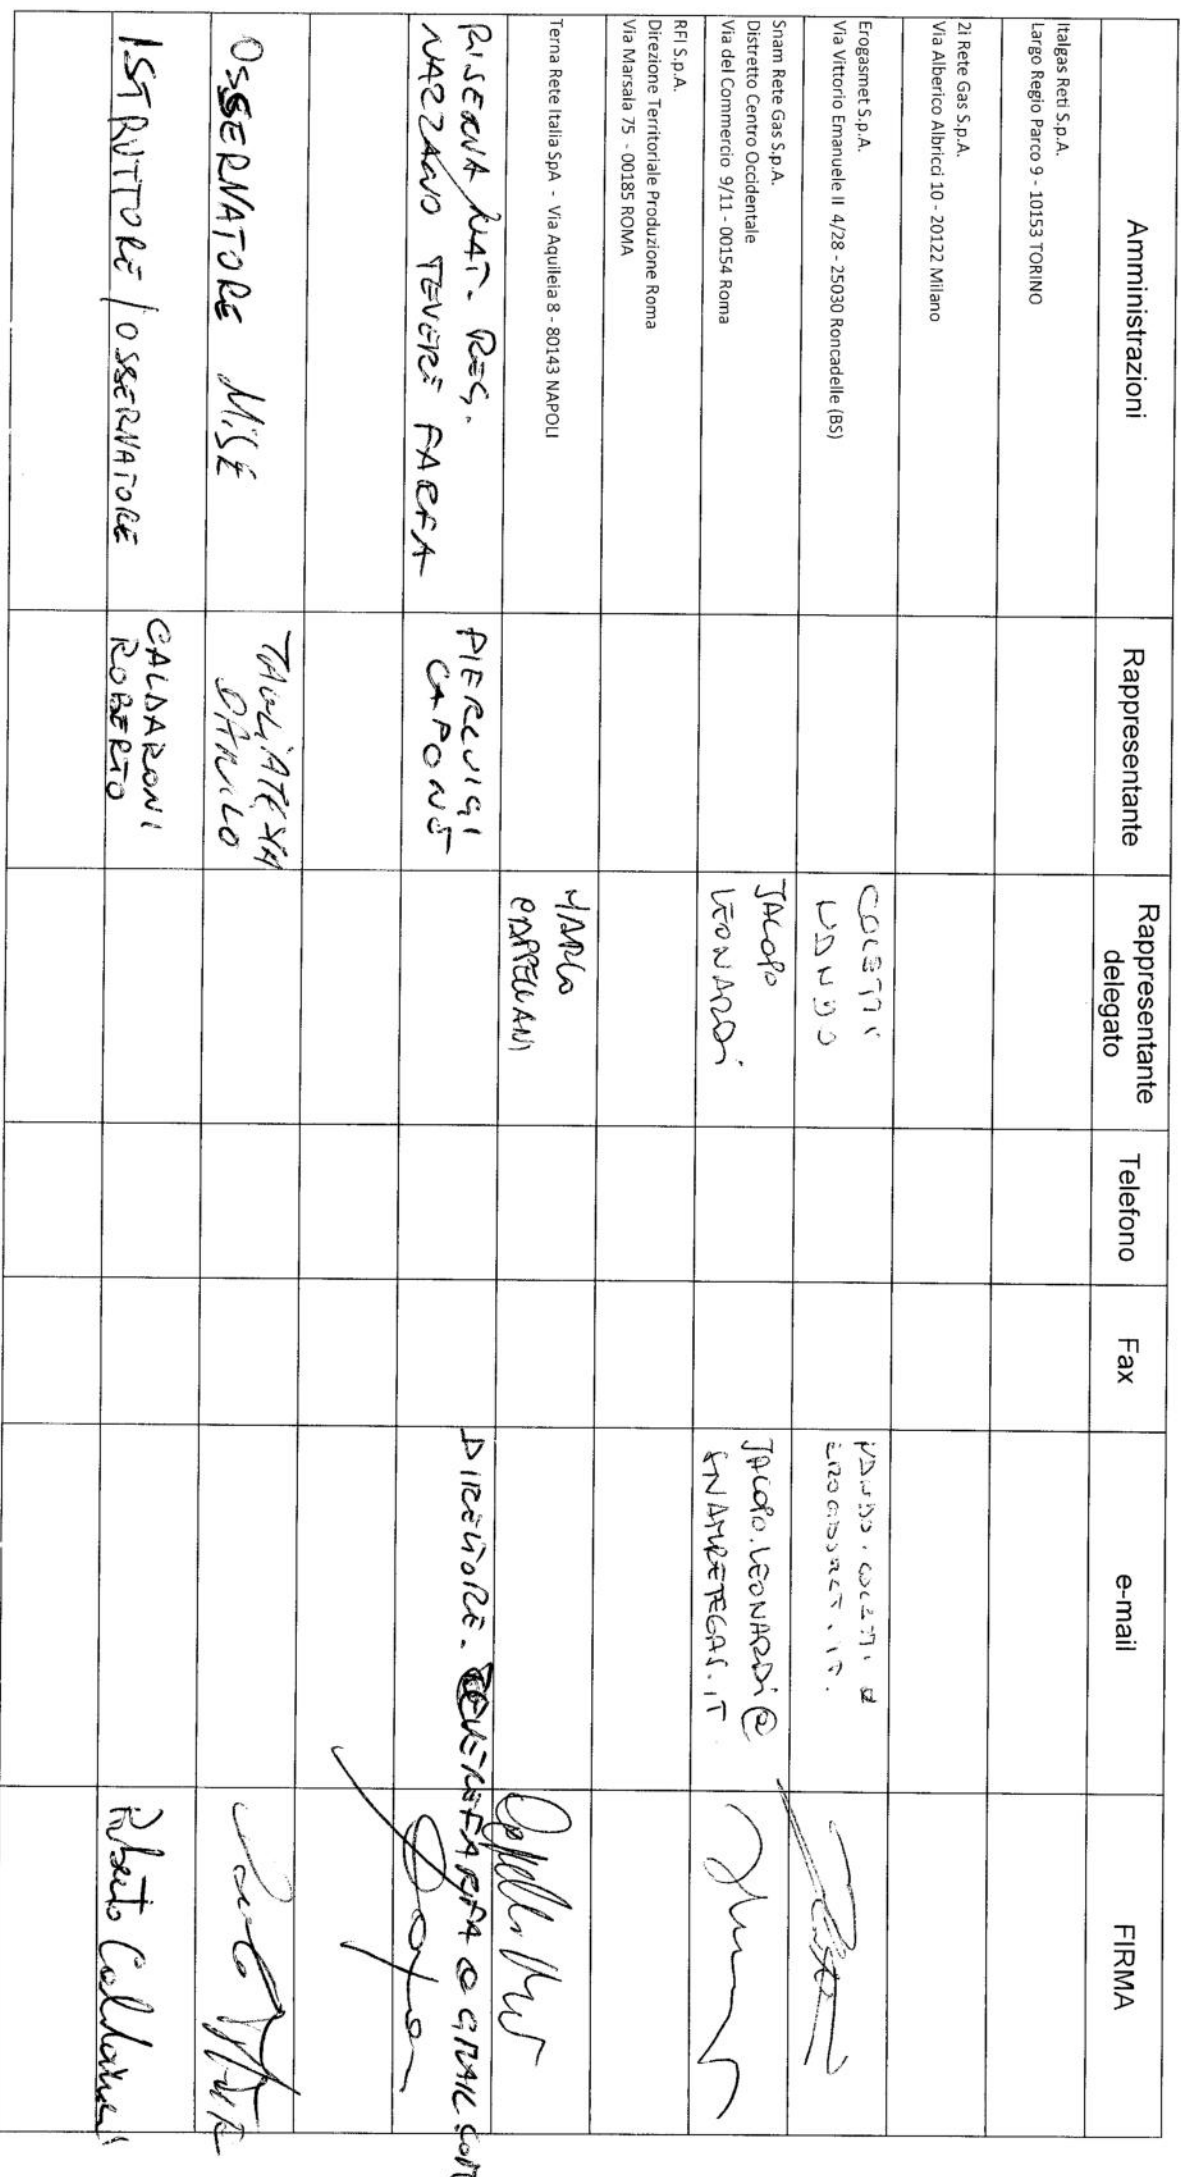 Amministrazioni
Rappresentante
Rappresentante
delegato
Telefono
Fax
e-mail
FIRMA
Italgas Reti S.p.A.
Largo Regio Parco 9 - 10153 TORINO
2i Rete Gas S.p.A.
Via Alberico Albricci 10 - 20122 Milano
Erogasmet S.p.A.
Via Vittorio Emanuele II 4/28 - 25030 Roncadelle (BS)
COLETTI
NANDO
Snam Rete Gas S.p.A.
Distretto Centro Occidentale
Via del Commercio 9/11 - 00154 Roma
JACOPO
LEONARDI
JACOPO.LEONARDI@
SNAMRETEGAS.IT
RFI S.p.A.
Direzione Territoriale Produzione Roma
Via Marsala 75 - 00185 ROMA
Terna Rete Italia SpA - Via Aquileia 8 - 80143 NAPOLI
MARCO
CAPPELLANI
RISERVA NAT. REG.
NAZZANO TEVERE FARFA
PIERLUIGI
CAPONE
DIRETTORE.TEVEREFARFA@GMAIL.COM
OSSERVATORE MISE
DANILO
ISTRUTTORE/OSSERVATORE
CALDARONI
ROBERTO
Roberto Caldaroni